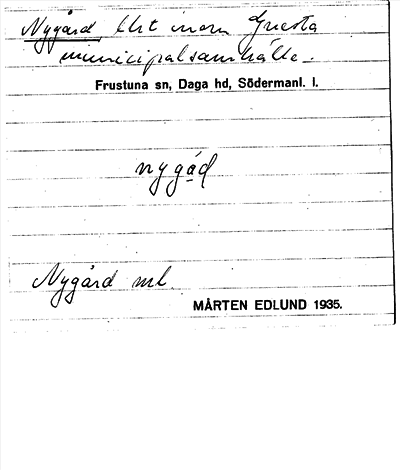 Nygård, lht inom Gnesta
municipalsamhälle.
Frustuna sn, Daga hd, Södermanl. l.
nygåd
Nygård ml.
MÅRTEN EDLUND 1935.